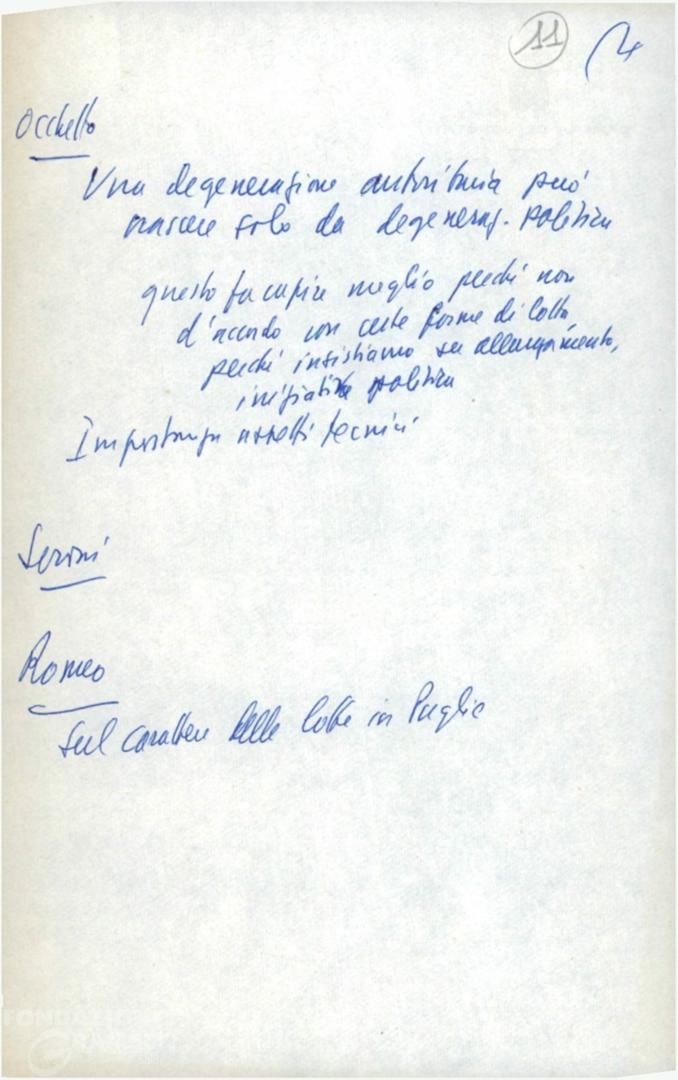 11
Occhetto
Una degenerazione autoritaria può
nascere solo da degeneraz. politica
questo fa capire meglio perché non
d'accordo con certe forme di lotta
perché insistiamo su allargamento,
iniziativa politica
Importanza aspetti tecnici
Seroni
Romeo
Sul carattere delle lotte in Puglia
FONDAZIONE
GRAMSCI